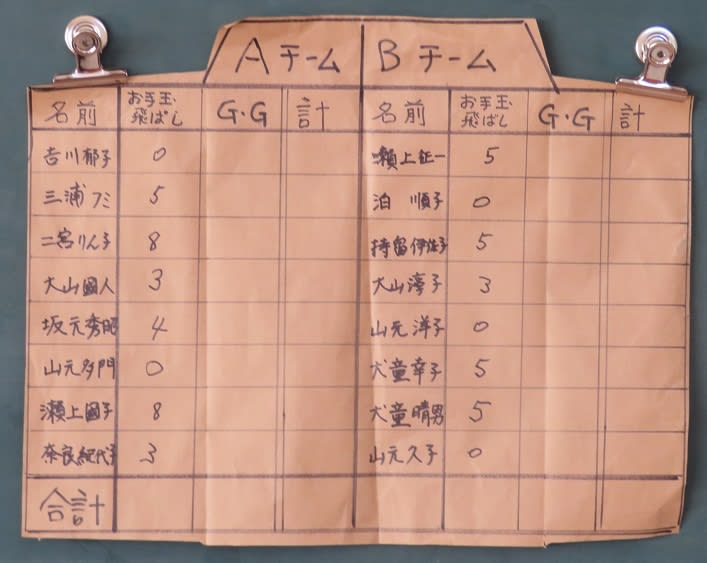 Aチーム Bチーム
名前 お手玉飛ばし G・G 計 名前 お手玉飛ばし G・G 計
吉川郁子 0 瀬上征一 5
三浦フミ 5 泊 順子 0
二宮りん子 8 持留伊佐子 5
大山國人 3 大山淳子 3
坂元秀昭 4 山元洋子 0
山元多門 0 犬童幸子 5
瀬上國子 8 犬童晴男 5
奈良紀代子 3 山元久子 0
合計